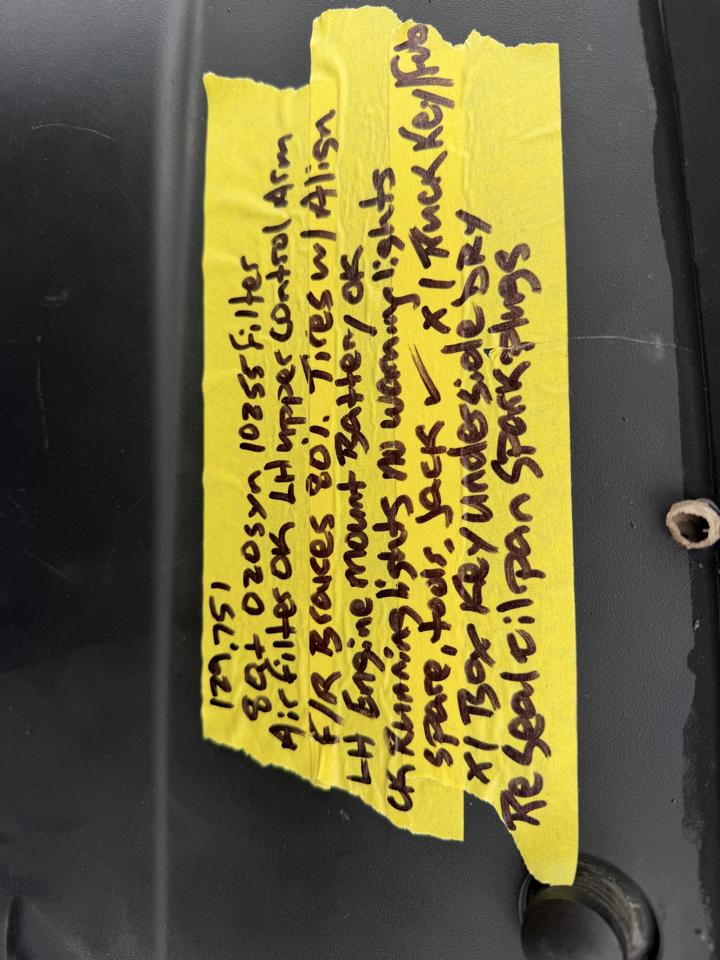 129,751
8qt 020syn 10255 filter
Air filter OK LH upper control Arm
F/R Brakes 80% Tires w/ Align
LH Engine mount Battery OK
CK Running lights All warning lights
spare, tools, Jack ✓ x1 Truck Key/Fob
x1 Box Key underside DRY
ReSeal oil pan Spark plugs